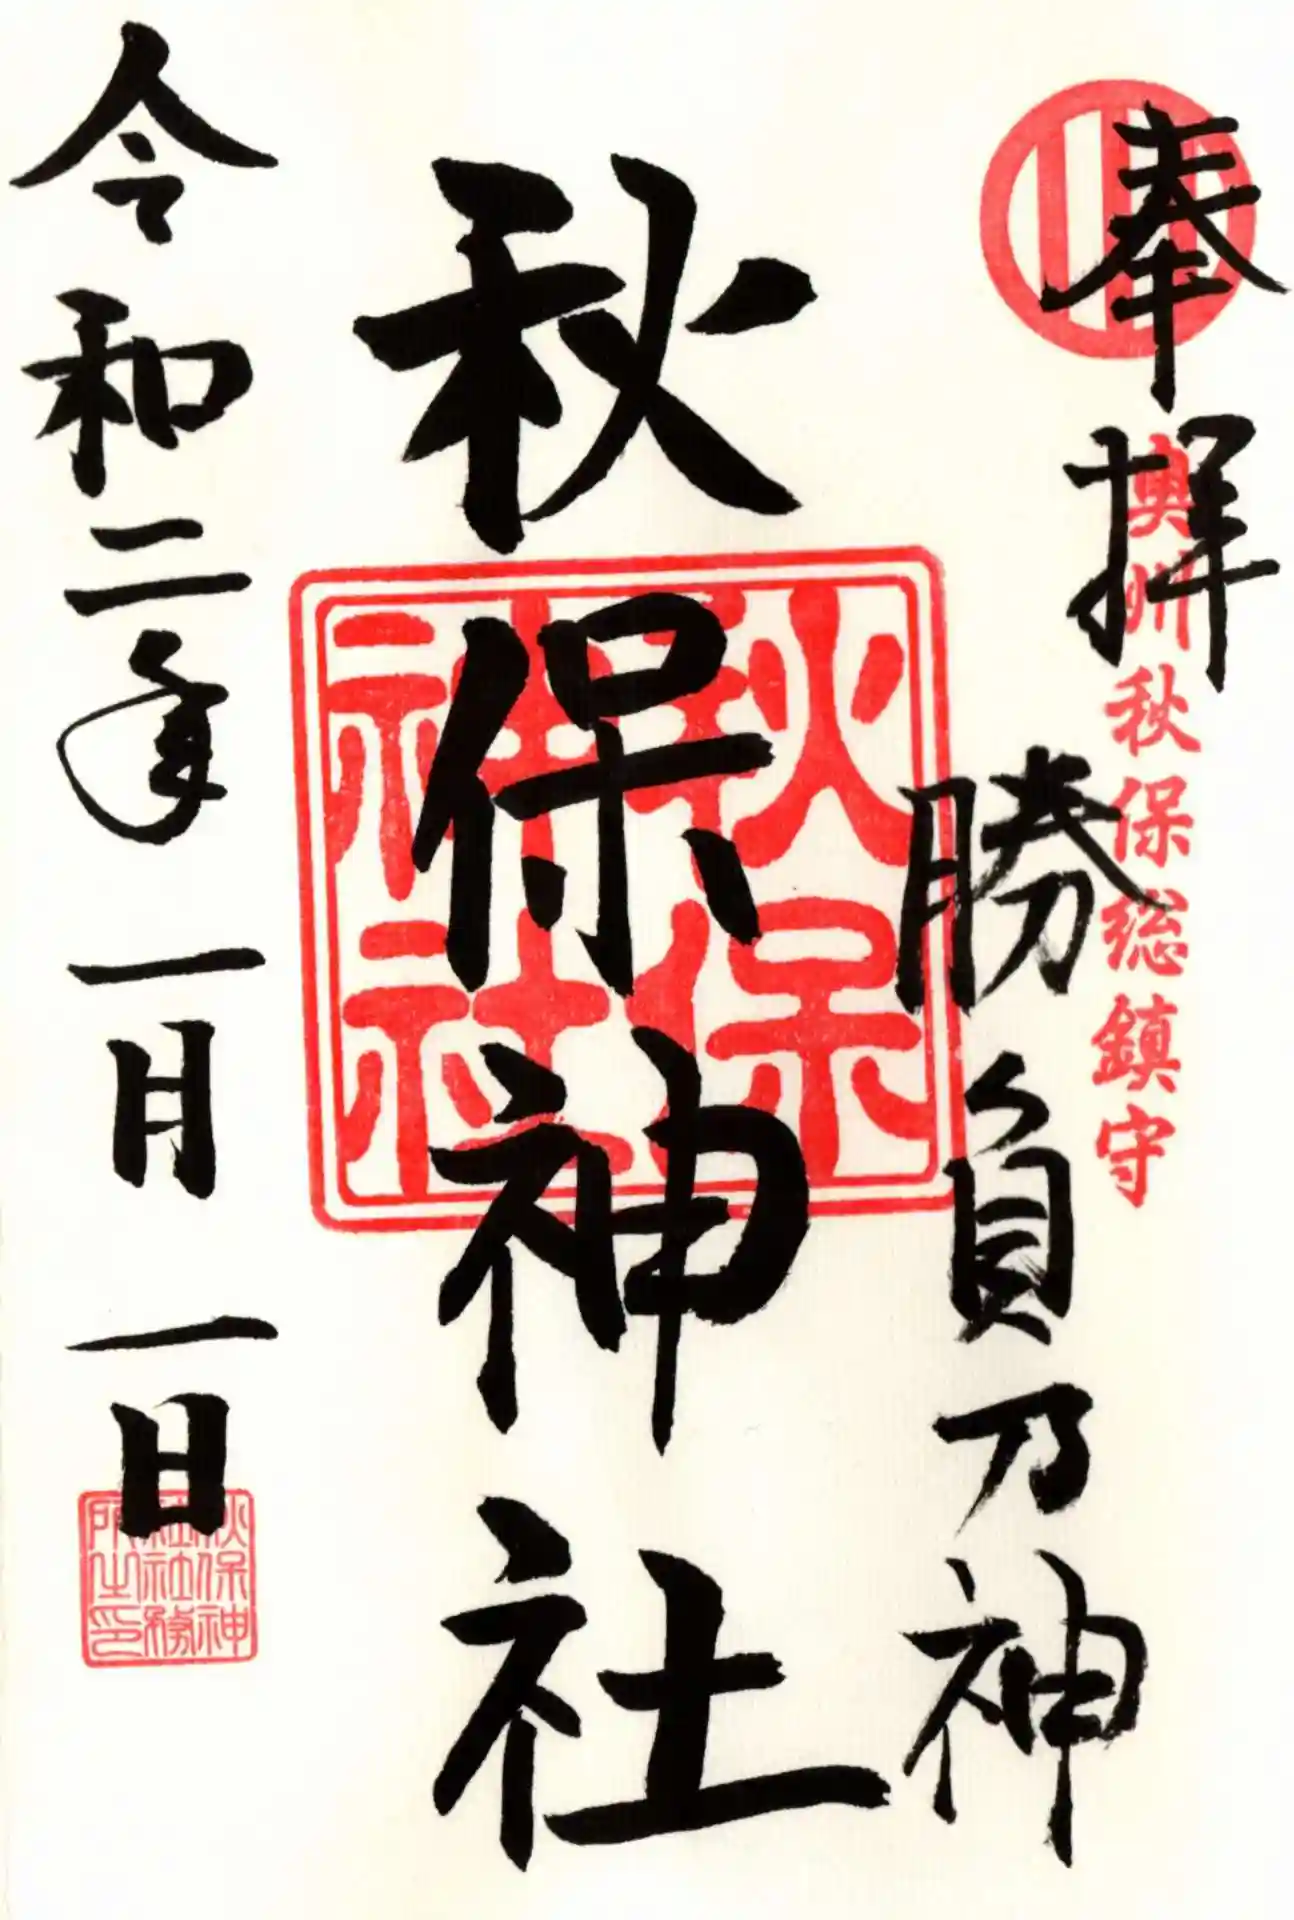 奉拝
奥州秋保総鎮守
勝負乃神
秋保神社
秋保神社
令和二年 一月 一日
秋保神
社社務
所之印